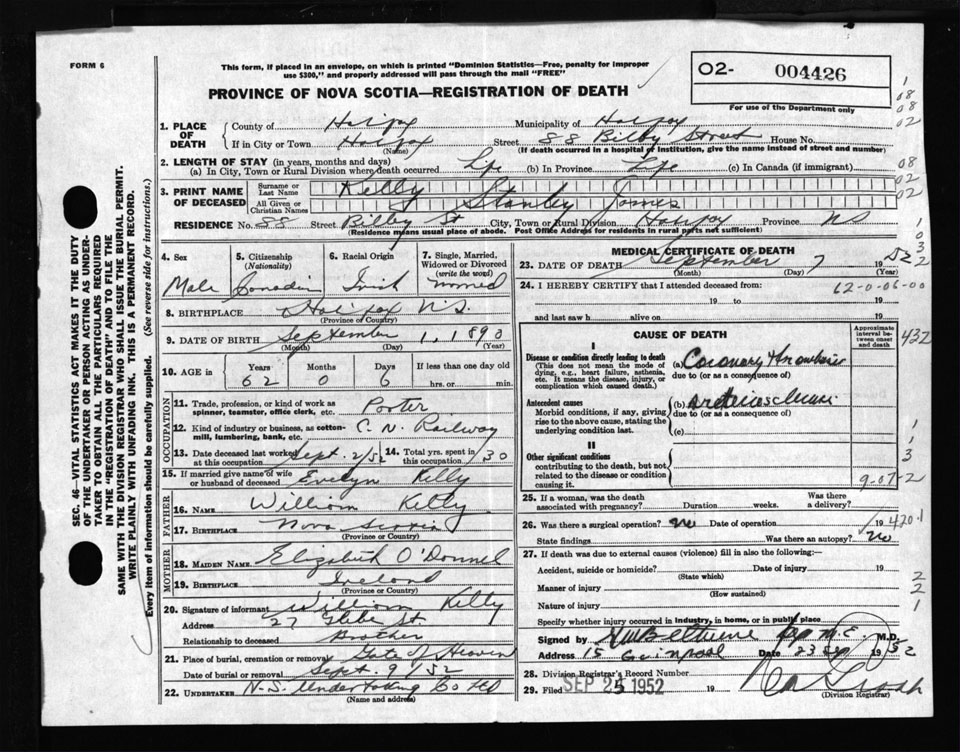 FORM 6
This form, if placed in an envelope, on which is printed "Dominion Statistics—Free, penalty for improper
use $300," and properly addressed will pass through the mail "FREE"
PROVINCE OF NOVA SCOTIA—REGISTRATION OF DEATH
02- 004426
For use of the Department only
1. PLACE OF DEATH
County of Halifax Municipality of Halifax
If in City or Town Halifax Street 88 Bilby Street House No.
(Name) (If death occurred in a hospital or institution, give the name instead of street and number)
2. LENGTH OF STAY (in years, months and days)
(a) In City, Town or Rural Division where death occurred Life (b) In Province Life (c) In Canada (if immigrant)
3. PRINT NAME OF DECEASED
Surname or Last Name Kelly
All Given or Christian Names Stanley James
RESIDENCE No. 88 Street Bilby St City, Town or Rural Division Halifax Province NS
(Residence means usual place of abode. Post Office Address for residents in rural parts not sufficient)
4. Sex Male
5. Citizenship (Nationality) Canadian
6. Racial Origin Irish
7. Single, Married, Widowed or Divorced (write the word) married
8. BIRTHPLACE Halifax N.S.
(Province or Country)
9. DATE OF BIRTH September 1, 1890
(Month) (Day) (Year)
10. AGE in Years 62 Months 0 Days 6 If less than one day old
hrs. or min.
OCCUPATION
11. Trade, profession, or kind of work as spinner, teamster, office clerk, etc. Porter
12. Kind of industry or business, as cotton-mill, lumbering, bank, etc. C. N. Railway
13. Date deceased last worked at this occupation Sept. 2/52 14. Total yrs. spent in this occupation 30
15. If married give name of wife or husband of deceased Evelyn Kelly
FATHER
16. NAME William Kelly
17. BIRTHPLACE Nova Scotia
(Province or Country)
MOTHER
18. MAIDEN NAME Elizabeth O'Donnel
19. BIRTHPLACE Ireland
(Province or Country)
20. Signature of informant William Kelly
Address 27 Glebe St
Relationship to deceased Brother
21. Place of burial, cremation or removal Gate of Heaven
Date of burial or removal Sept. 9/52
22. UNDERTAKER N.S. Undertaking Co Ltd
(Name and address)
MEDICAL CERTIFICATE OF DEATH
23. DATE OF DEATH September 7 1952
(Month) (Day) (Year)
24. I HEREBY CERTIFY that I attended deceased from
12-0-06-00
19 to 19
and last saw h alive on 19
CAUSE OF DEATH
Approximate interval between onset and death
432
I
Disease or condition directly leading to death
(This does not mean the mode of dying, e.g., heart failure, asthenia, etc. It means the disease, injury, or complication which caused death.)
(a) Coronary thrombosis
due to (or as a consequence of)
Antecedent causes
Morbid conditions, if any, giving rise to the above cause, stating the underlying condition last.
(b) arteriosclerosis
due to (or as a consequence of)
(c)
II
Other significant conditions
contributing to the death, but not related to the disease or condition causing it.
9-07-2
25. If a woman, was the death associated with pregnancy? Duration weeks. Was there a delivery?
26. Was there a surgical operation? No Date of operation 19
420.1
State findings Was there an autopsy? No
27. If death was due to external causes (violence) fill in also the following:—
Accident, suicide or homicide? Date of injury 19
(State which)
Manner of injury
(How sustained)
Nature of injury
Specify whether injury occurred in industry, in home, or in public place
Signed by M.D.
Address 15 Date 23 Sep 1952
28. Division Registrar's Record Number
29. Filed SEP 25 1952 19
(Division Registrar)
SEC. 46—VITAL STATISTICS ACT MAKES IT THE DUTY
OF THE UNDERTAKER OR PERSON ACTING AS UNDER-
TAKER TO OBTAIN ALL THE PARTICULARS REQUIRED
IN THE "REGISTRATION OF DEATH" AND TO FILE THE
SAME WITH THE DIVISION REGISTRAR WHO SHALL ISSUE THE BURIAL PERMIT.
WRITE PLAINLY WITH UNFADING INK. THIS IS A PERMANENT RECORD.
Every item of information should be carefully supplied. (See reverse side for instructions.)